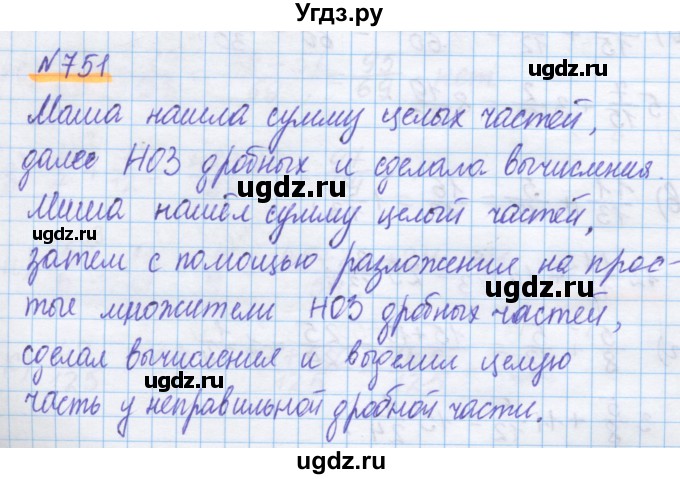 Угдз.ру
№751
Маша нашла сумму целых частей,
далее НОЗ дробных и сделала вычисления.
ugdz.ru
ugdz.ru
Миша нашёл сумму целый частей,
ugdz.ru
затем с помощью разложения на прос-
ugdz.ru
тые множители НОЗ дробных частей,
ugdz.ru
сделал вычисления и выделил целую
ugdz.ru
часть у неправильной дробной части.
ugdz.ru
ugdz.ru